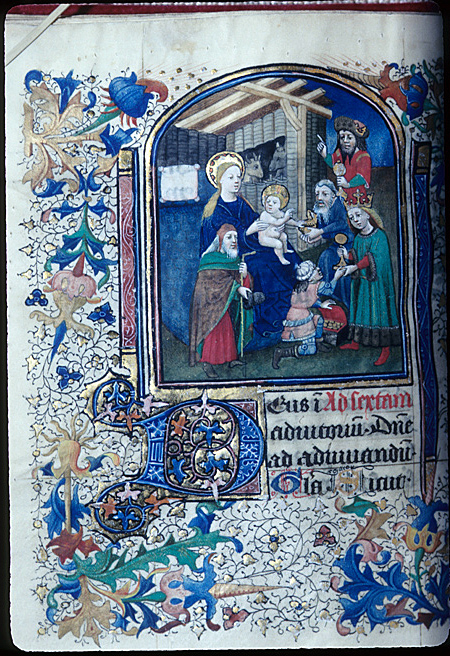 Deus ī Ad sextam
adiutoriū. Dn̄e
ad adiuuandū.
Gl̄a Sicut.